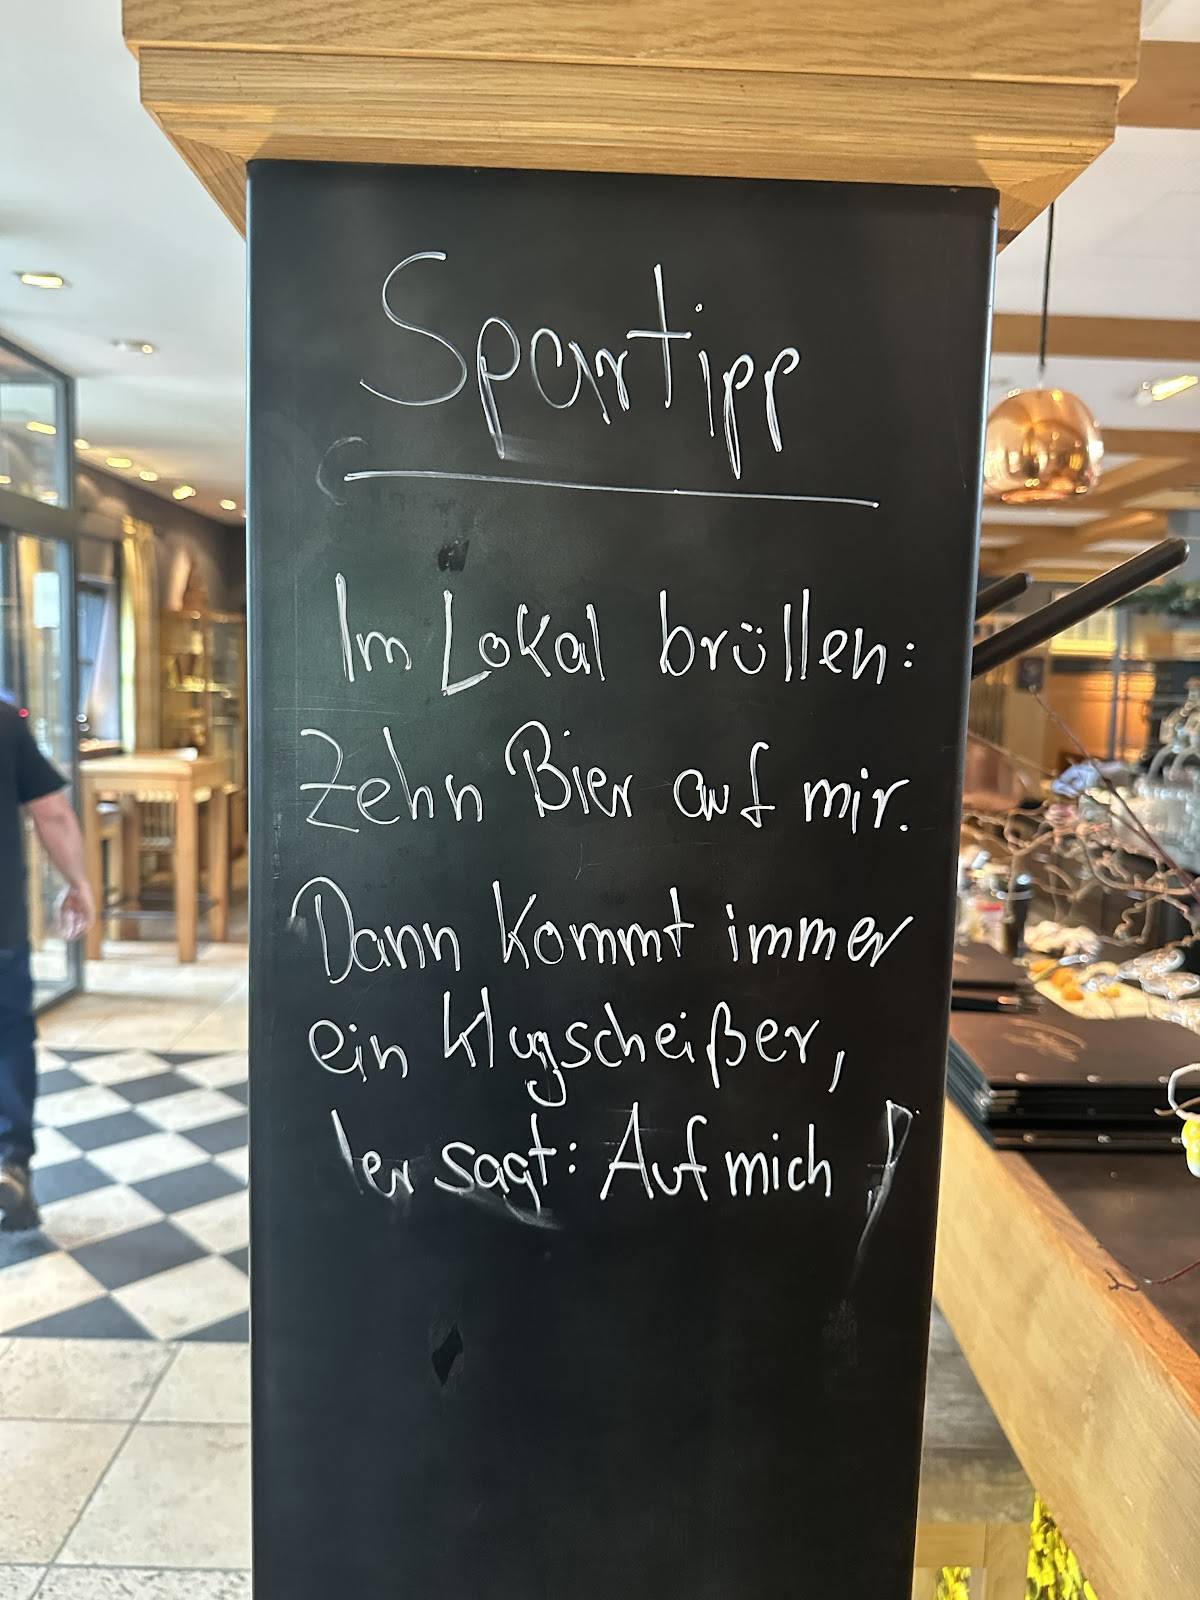 Spartipp
Im Lokal brüllen:
Zehn Bier auf mir.
Dann kommt immer
ein Klugscheißer,
der sagt: Auf mich!